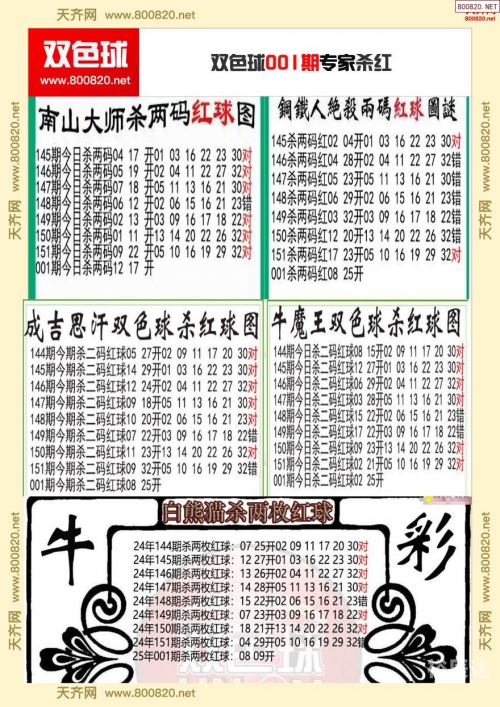 天齐网 www.800820.net
天齐网 www.800820.net
800820. NET
www.800820.net
双色球
www.800820.net
双色球001期专家杀红
南山大师杀两码红球图
145期今日杀两码04 17 开01 03 16 22 23 30对
146期今日杀两码05 19 开02 04 11 22 27 32对
147期今日杀两码07 18 开05 11 13 16 21 30对
148期今日杀两码06 12 开02 06 15 16 21 23错
149期今日杀两码02 13 开03 09 16 17 18 22对
150期今日杀两码01 11 开13 14 20 22 26 32对
151期今日杀两码09 22 开05 10 16 19 29 32对
001期今日杀两码12 17 开
銅鐵人絶殺兩碼紅球圖謎
145杀两码红02 04开01 03 16 22 23 30对
146杀两码红04 28开02 04 11 22 27 32错
147杀两码红05 23开05 11 13 16 21 30错
148杀两码红04 31开02 06 15 16 21 23对
149杀两码红09 32开03 09 16 17 18 22错
150杀两码红12 20开13 14 20 22 26 32错
151杀两码红17 23开05 10 16 19 29 32对
001杀两码红08 25开
成吉思汗双色球杀红球图
144期今期杀二码红球05 27开02 09 11 17 20 30对
145期今期杀二码红球14 29开01 03 16 22 23 30对
146期今期杀二码红球12 24开02 04 11 22 27 32对
147期今期杀二码红球09 18开05 11 13 16 21 30对
148期今期杀二码红球10 20开02 06 15 16 21 23对
149期今期杀二码红球07 22开03 09 16 17 18 22错
150期今期杀二码红球11 23开13 14 20 22 26 32对
151期今期杀二码红球09 32开05 10 16 19 29 32错
001期今期杀二码红球08 25开
牛魔王双色球杀红球图
144期今日杀二码红球08 15开02 09 11 17 20 30对
145期今日杀二码红球
146期今日杀二码红球
147期今日杀二码红球
148期今日杀二码红球
149期今日杀二码红球
150期今日杀二码红球
151期今日杀二码红球
001期今日杀二码红球02 25开
白熊猫杀两枚红球
牛
彩
24年144期杀两枚红球：07 25开02 09 11 17 20 30对
24年145期杀两枚红球：12 27开01 03 16 22 23 30对
24年146期杀两枚红球：13 26开02 04 11 22 27 32对
24年147期杀两枚红球：14 28开05 11 13 16 21 30对
24年148期杀两枚红球：15 22开02 06 15 16 21 23错
24年149期杀两枚红球：07 23开03 09 16 17 18 22对
24年150期杀两枚红球：18 21开13 14 20 22 26 32对
24年151期杀两枚红球：04 29开05 10 16 19 29 32错
25年001期杀两枚红球：08 09开
天齐网 www.800820.net
天齐网 www.800820.net